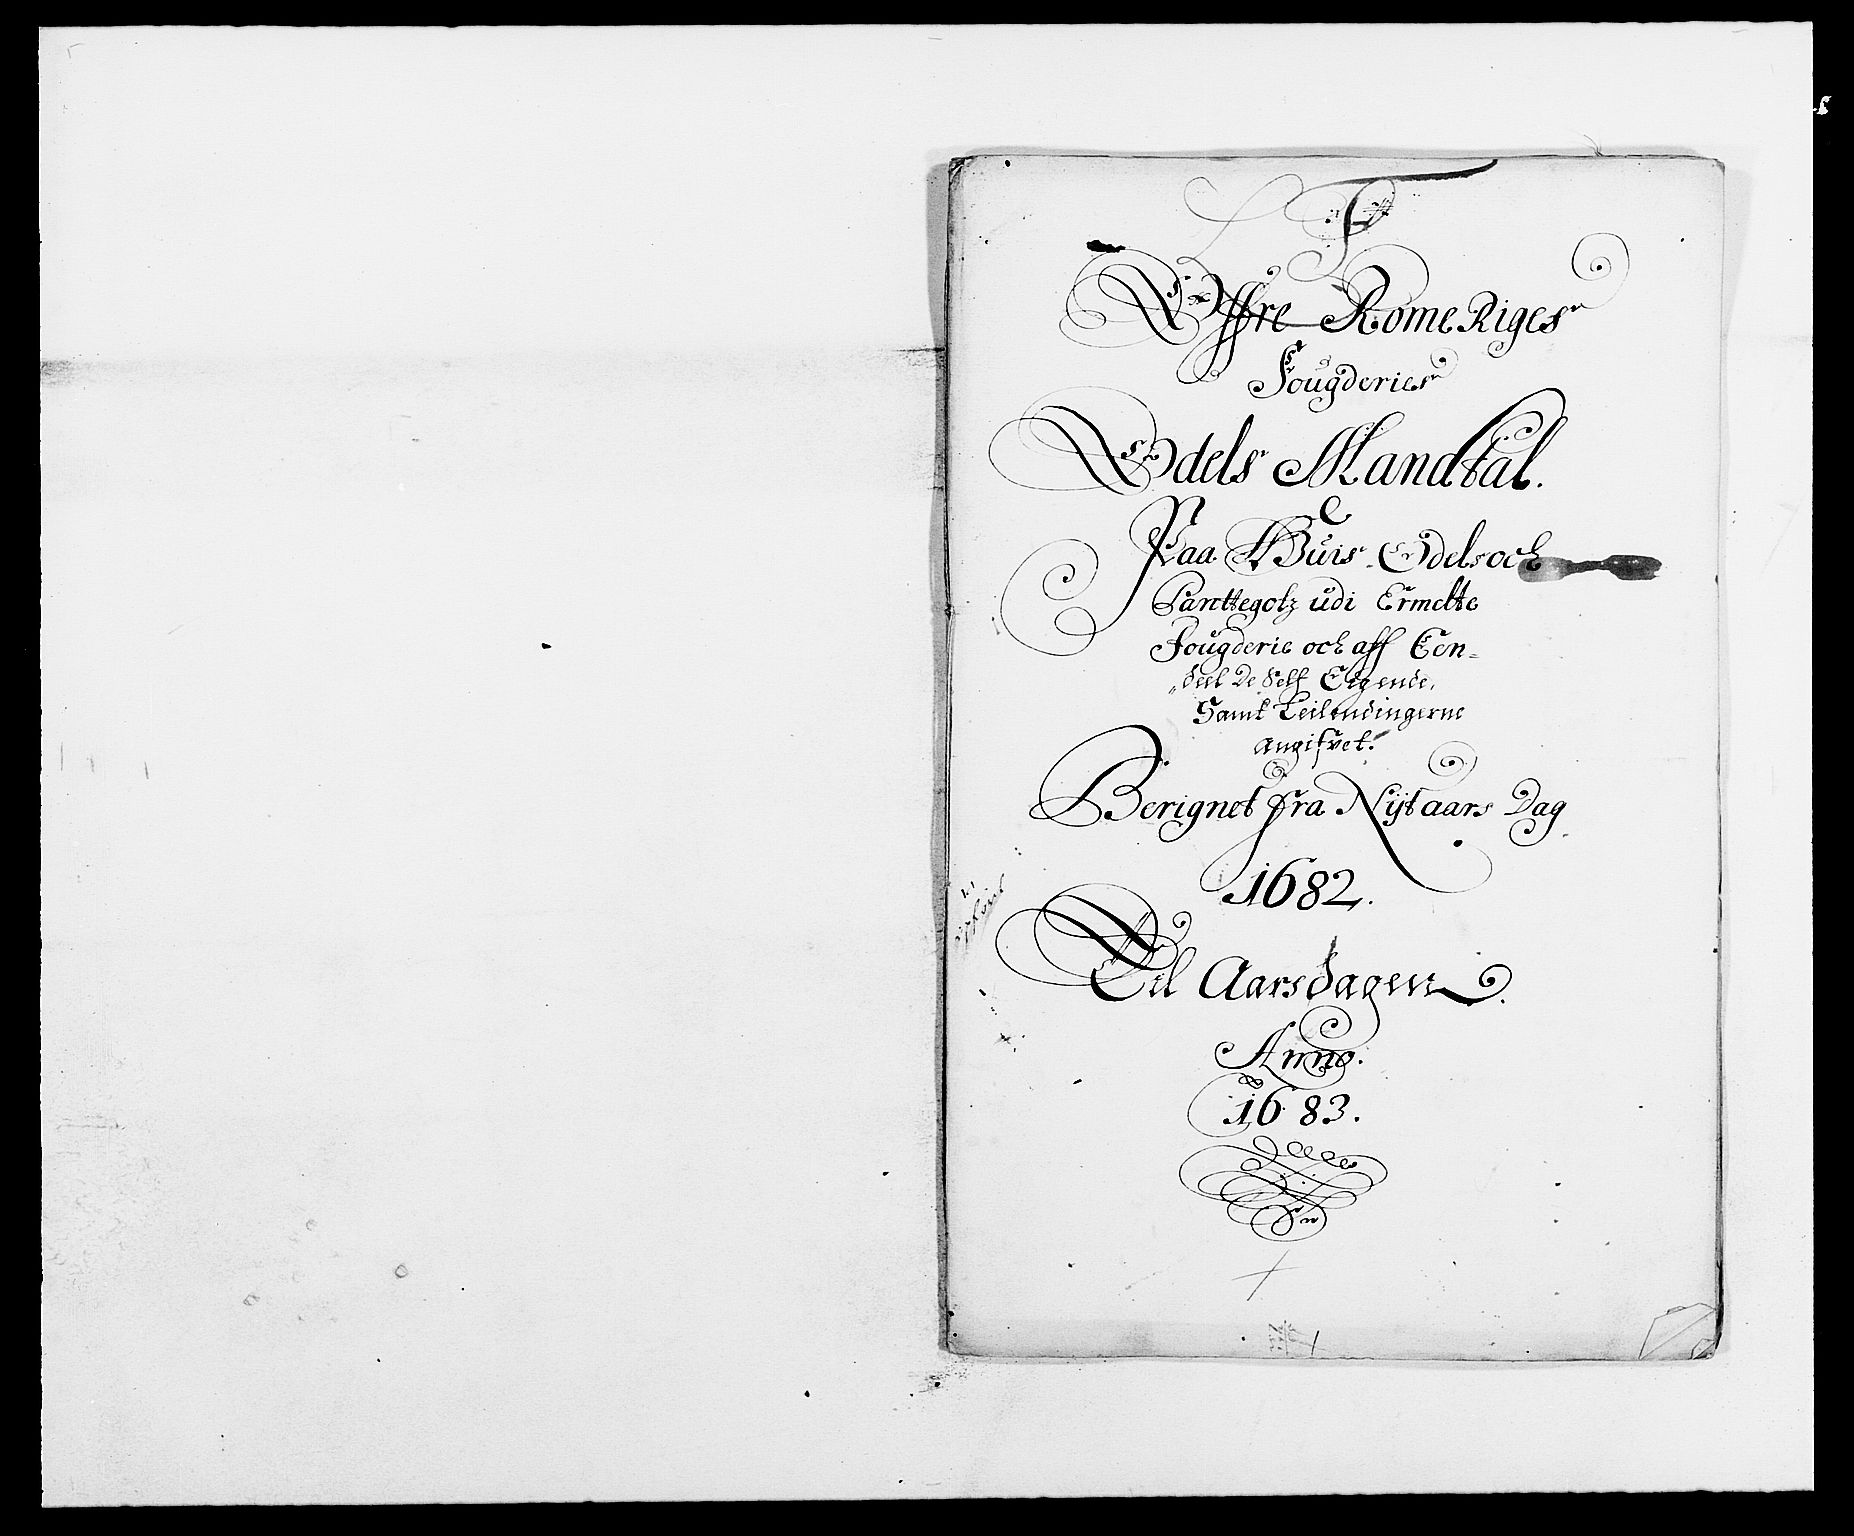 F
Offre RomeRiges
Fougderies
Odels Mandtal.
Paa Huis Odels och
Panttegotz udi Ermelte
Fougderie och aff Een-
deel De Self Eigende,
Samt Leilendingerne
angifvet.
Berignet fra Nijtaars Dag
1682.
Til Aarsdagen
Anno.
1683.